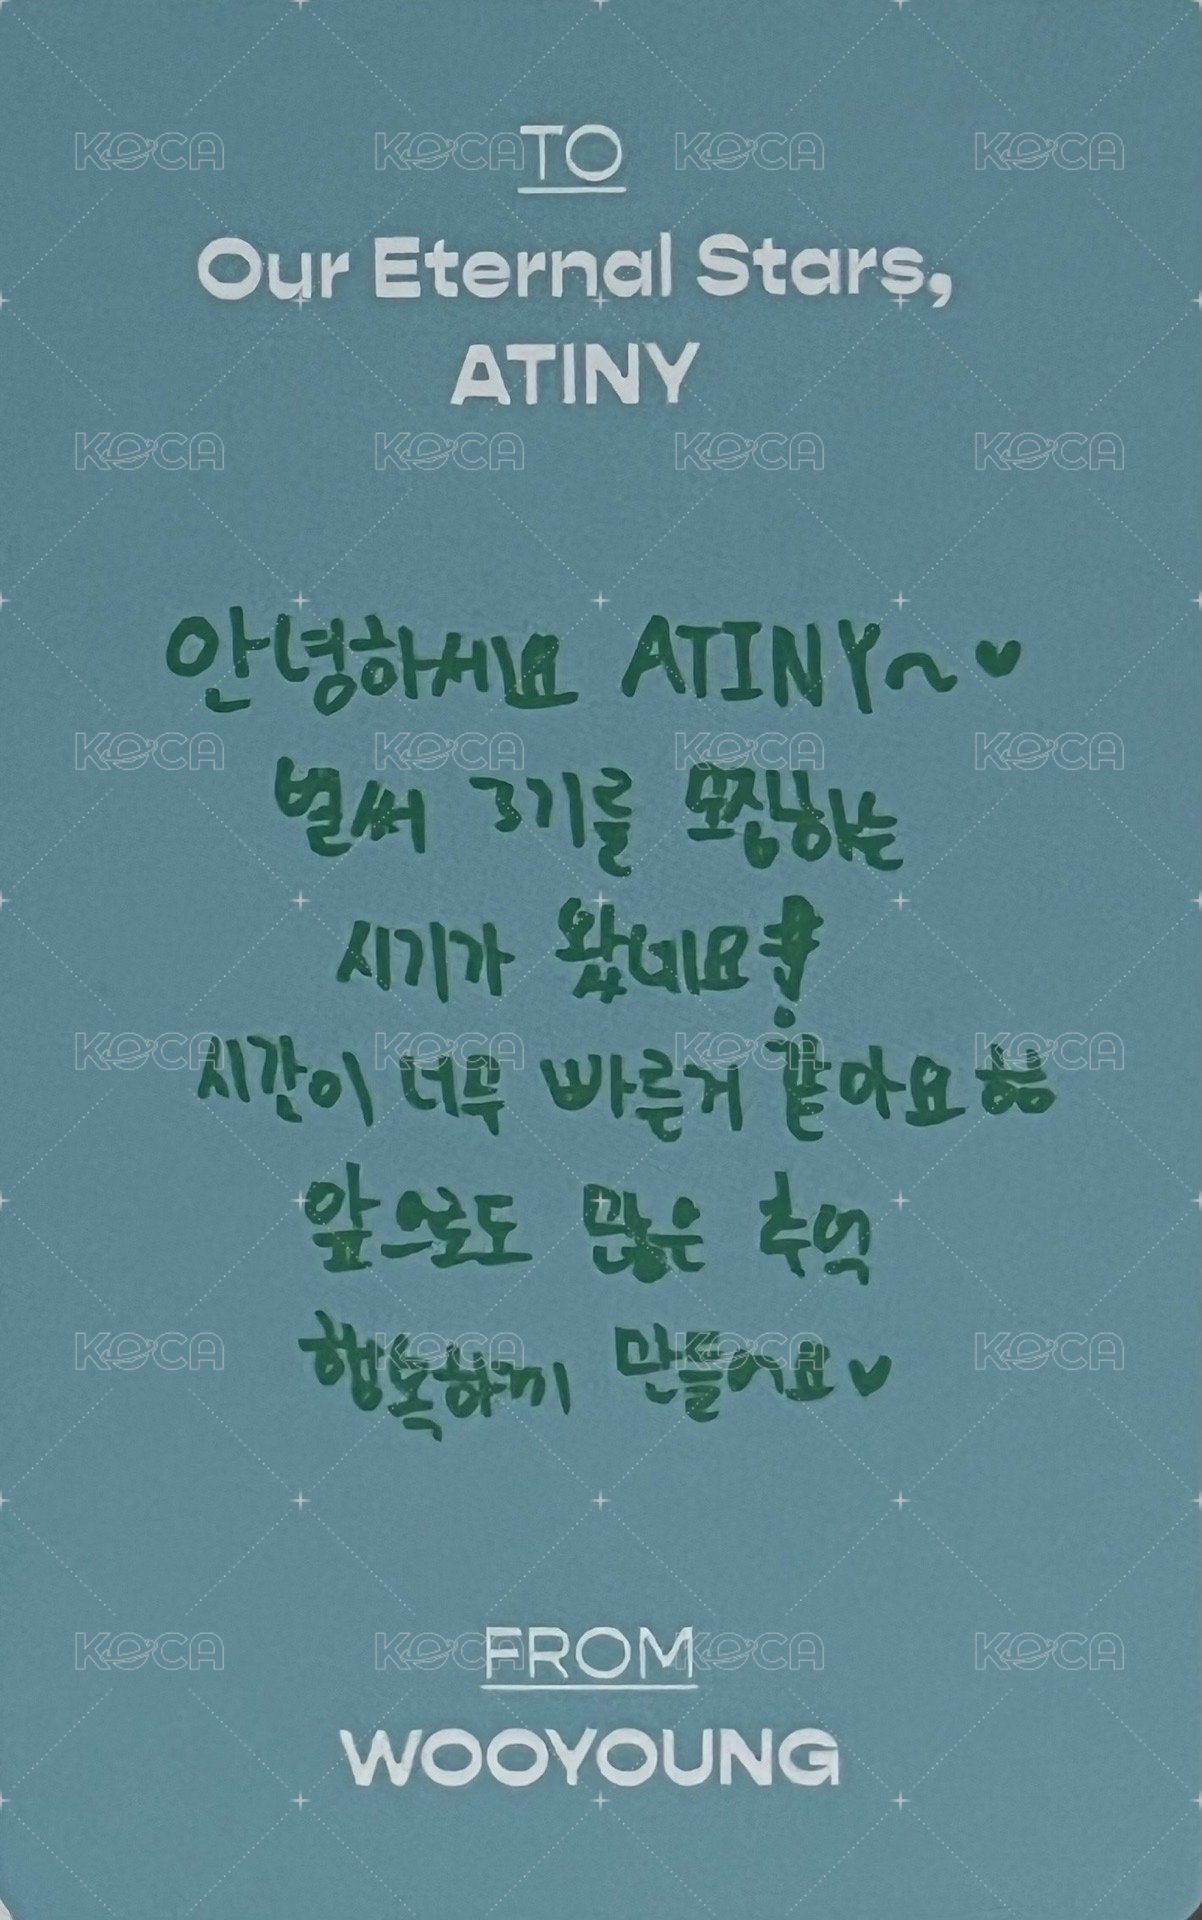 TO
Our Eternal Stars,
ATINY
안녕하세요 ATINY~♥
벌써 3기를 모집하는
시기가 왔네요!
시간이 너무 빠른거 같아요 ㅎㅎ
앞으로도 많은 추억
행복하게 만들어요♥
FROM
WOOYOUNG
KOCA